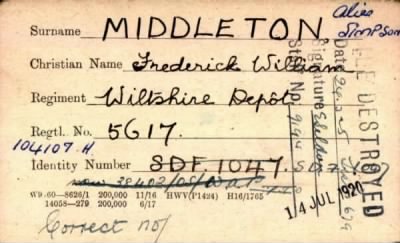 Surname MIDDLETON
alias
SIMPSON
Christian Name Frederick William
Regiment Wiltshire Depôt
Regtl. No. 5617.
104107.H.
Identity Number SDF 1047.
W9.60—8626/1 200,000 11/16 HWV(P1424) H16/1765
14058—279 200,000 6/17
Correct no/
FILE DESTROYED
Date
Signature
14 JUL 1920